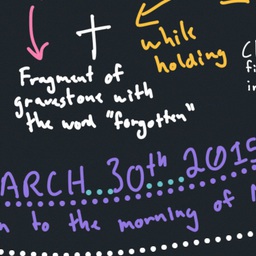 while
holding
Fragment of
gravestone with
the word "forgotten"
ARCH...30th.....2015
to the morning of